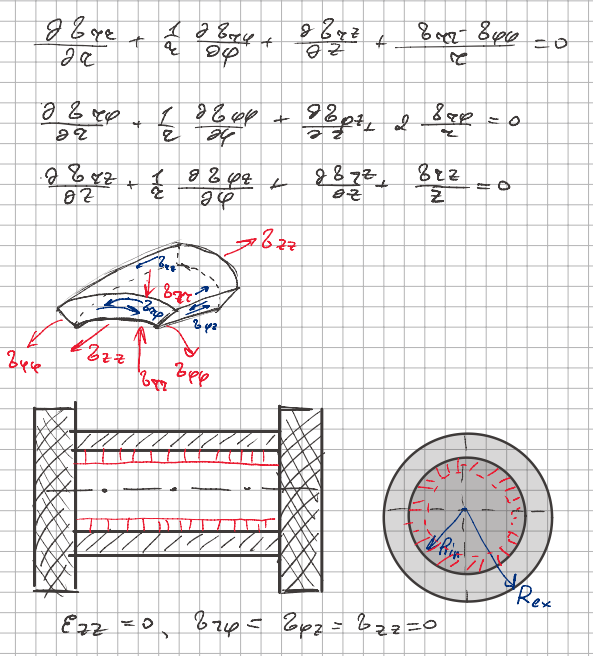 ∂σrr/∂r + 1/r ∂σrφ/∂φ + ∂σrz/∂z + (σrr - σφφ)/r = 0
∂σrφ/∂r + 1/r ∂σφφ/∂φ + ∂σφz/∂z + 2 σrφ/r = 0
∂σrz/∂z + 1/r ∂σφz/∂φ + ∂σzz/∂z + σrz/z = 0
σzz
σrz
σrr
σrφ
σφz
σφφ
σzz
σrr
σφφ
Rin
Rex
εzz = 0, σrφ = σφz = σzz = 0